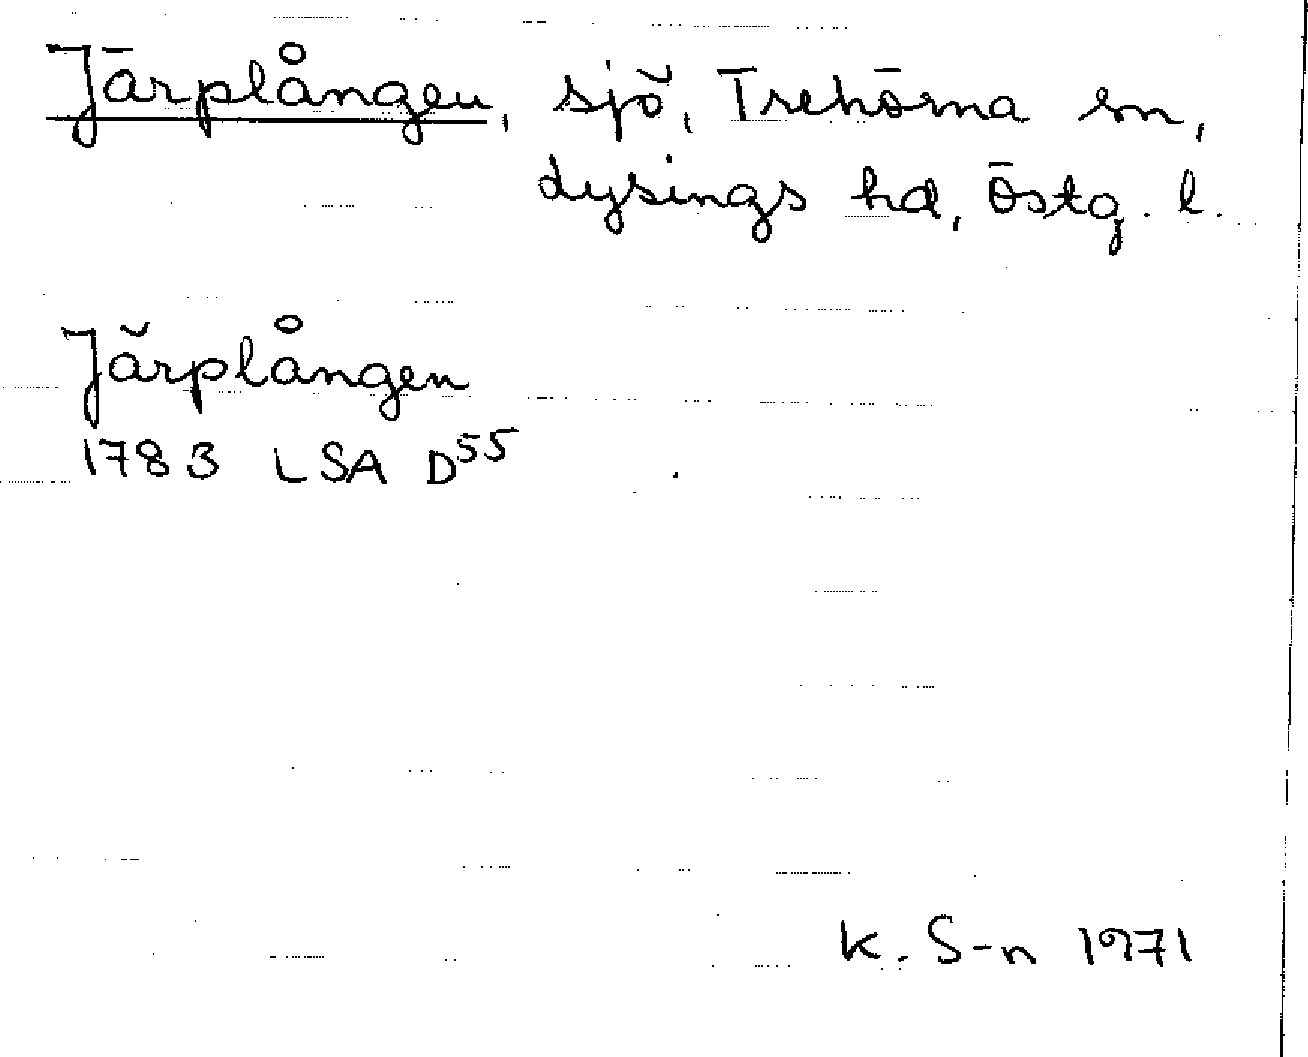 Järplången, sjö, Trehörna sn,
Lysings hd, Östg. l.
Järplången
1783 LSA D55
K. S-n 1971